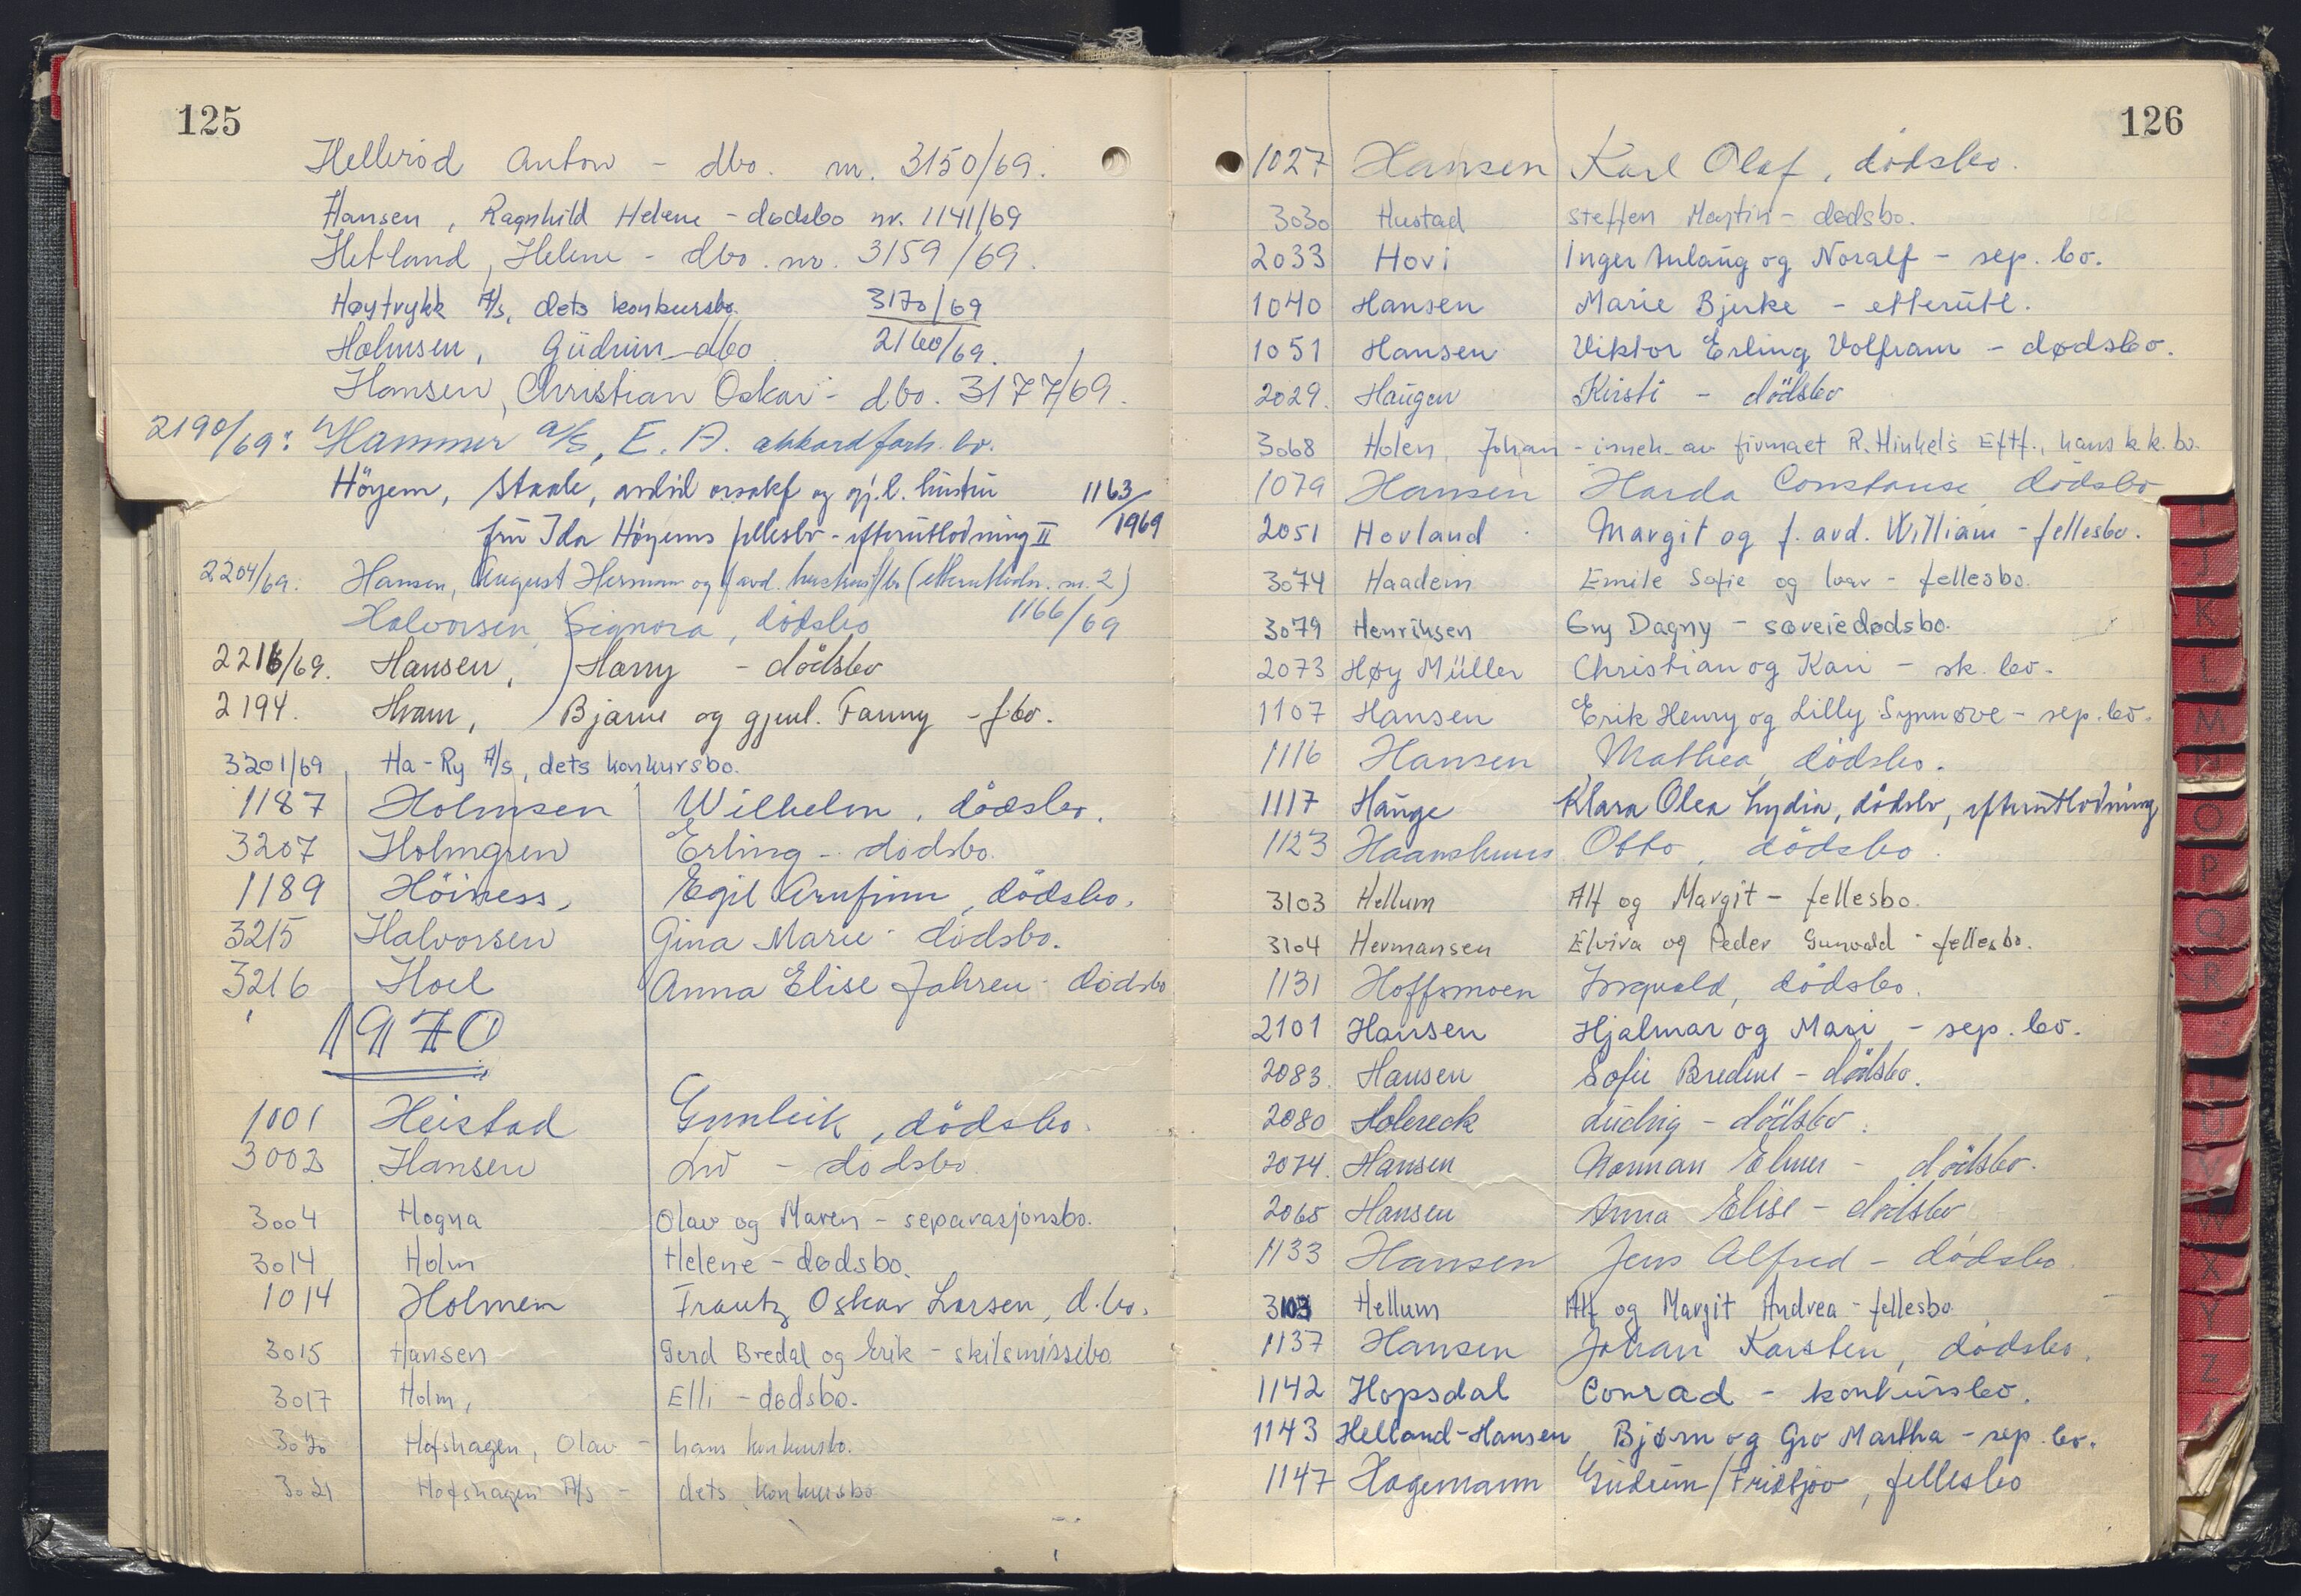 125
Hellerød Anton - dbo. nr. 3150/69.
Hansen, Ragnhild Helene - dødsbo nr. 1141/69
Hetland, Helene - dbo. nr. 3159/69.
Høytrykk A/S, dets konkursbo. 3170/69
Holmsen, Gudrun - dbo 2160/69.
Hansen, Christian Oskar - dbo. 3177/69.
2190/69: Hammer a/s, E. A. akkordforh. bo.
Höyem, Staale, avdød orsakf og gj.l. hustru 1163/1969
fru Ida Höyems fellesbo - efterutlodning II
2204/69: Hansen, August Herman og f avd. hustrus f/bo (etterutlodn. nr. 2)
Halvorsen, Signora, dödsbo 1166/69
2216/69. Hansen, Harry - dödsbo
2194. Hvam, Bjarne og gjenl. Fanny - f.bo.
3201/69, Ha-Ry A/S, dets konkursbo.
1187 Holmsen Wilhelm, dödsbo.
3207 Holmgren Erling - dødsbo.
1189 Höiness, Egil Arnfinn, dödsbo.
3215 Halvorsen Gina Marie - dødsbo.
3216 Hoel Anna Elise Jahren - dødsbo
1970
1001 Heistad Gunleik, dödsbo.
3003 Hansen Liv - dødsbo
3004 Hogna Olav og Maren - separasjonsbo.
3014 Holm Helene - dødsbo.
1014 Holmen Frantz Oskar Larsen, d.bo.
3015 Hansen Gerd Bredal og Erik - skilsmissebo
3017 Holm, Elli - dødsbo.
3020 Hofshagen, Olav - hans konkursbo.
3021 Hofshagen A/S - dets konkursbo
126
1027 Hansen Karl Olaf, dödsbo.
3030 Hustad Steffen Martin - dødsbo.
2033 Hovi Inger Anlaug og Noralf - sep. bo.
1040 Hansen Marie Bjerke - etterutl.
1051 Hansen Viktor Erling Volfram - dødsbo.
2029. Haugen Kirsti - dödsbo
3068 Holen, Johan - inneh. av firmaet R. Hinkels Eftf., hans k.k. bo.
1079 Hansen Harda Constanse dödsbo
2051 Hovland Margit og f. avd. William - fellesbo.
3074 Haadem Emile Sofie og Ivar - fellesbo.
3079 Henriksen Gry Dagny - særeiedødsbo.
2073 Høy Müller Christian og Kari - sk. bo.
1107 Hansen Erik Henry og Lilly Synnøve - sep. bo.
1116 Hansen Mathea, dödsbo.
1117 Hauge Klara Olea Lydia, dödsbo, efterutlodning
1123 Haanshuus Otto, dödsbo.
3103 Hellum Alf og Margit - fellesbo.
3104 Hermansen Elvira og Peder Gunvald - fellesbo.
1131 Hoffsmoen Ingvald, dödsbo.
2101 Hansen Hjalmar og Mari - sep. bo.
2083. Hansen Sofie Bredine - dödsbo.
2080 Holereck Ludvig - dödsbo.
2074. Hansen Norman Elmer - dödsbo.
2065 Hansen Anna Elise - dödsbo
1133 Hansen Jens Alfred - dödsbo.
3103 Hellum Alf og Margit Andrea - fellesbo.
1137 Hansen Johan Karsten, dödsbo.
1142 Hopsdal Conrad - konkursbo.
1143 Helland-Hansen Bjørn og Gro Martha - sep. bo.
1147 Hagemann Gudrun/Fridtjov, fellesbo
I
J
K
L
M
N
O
P
Q
R
U
V
W
X
Y
Z